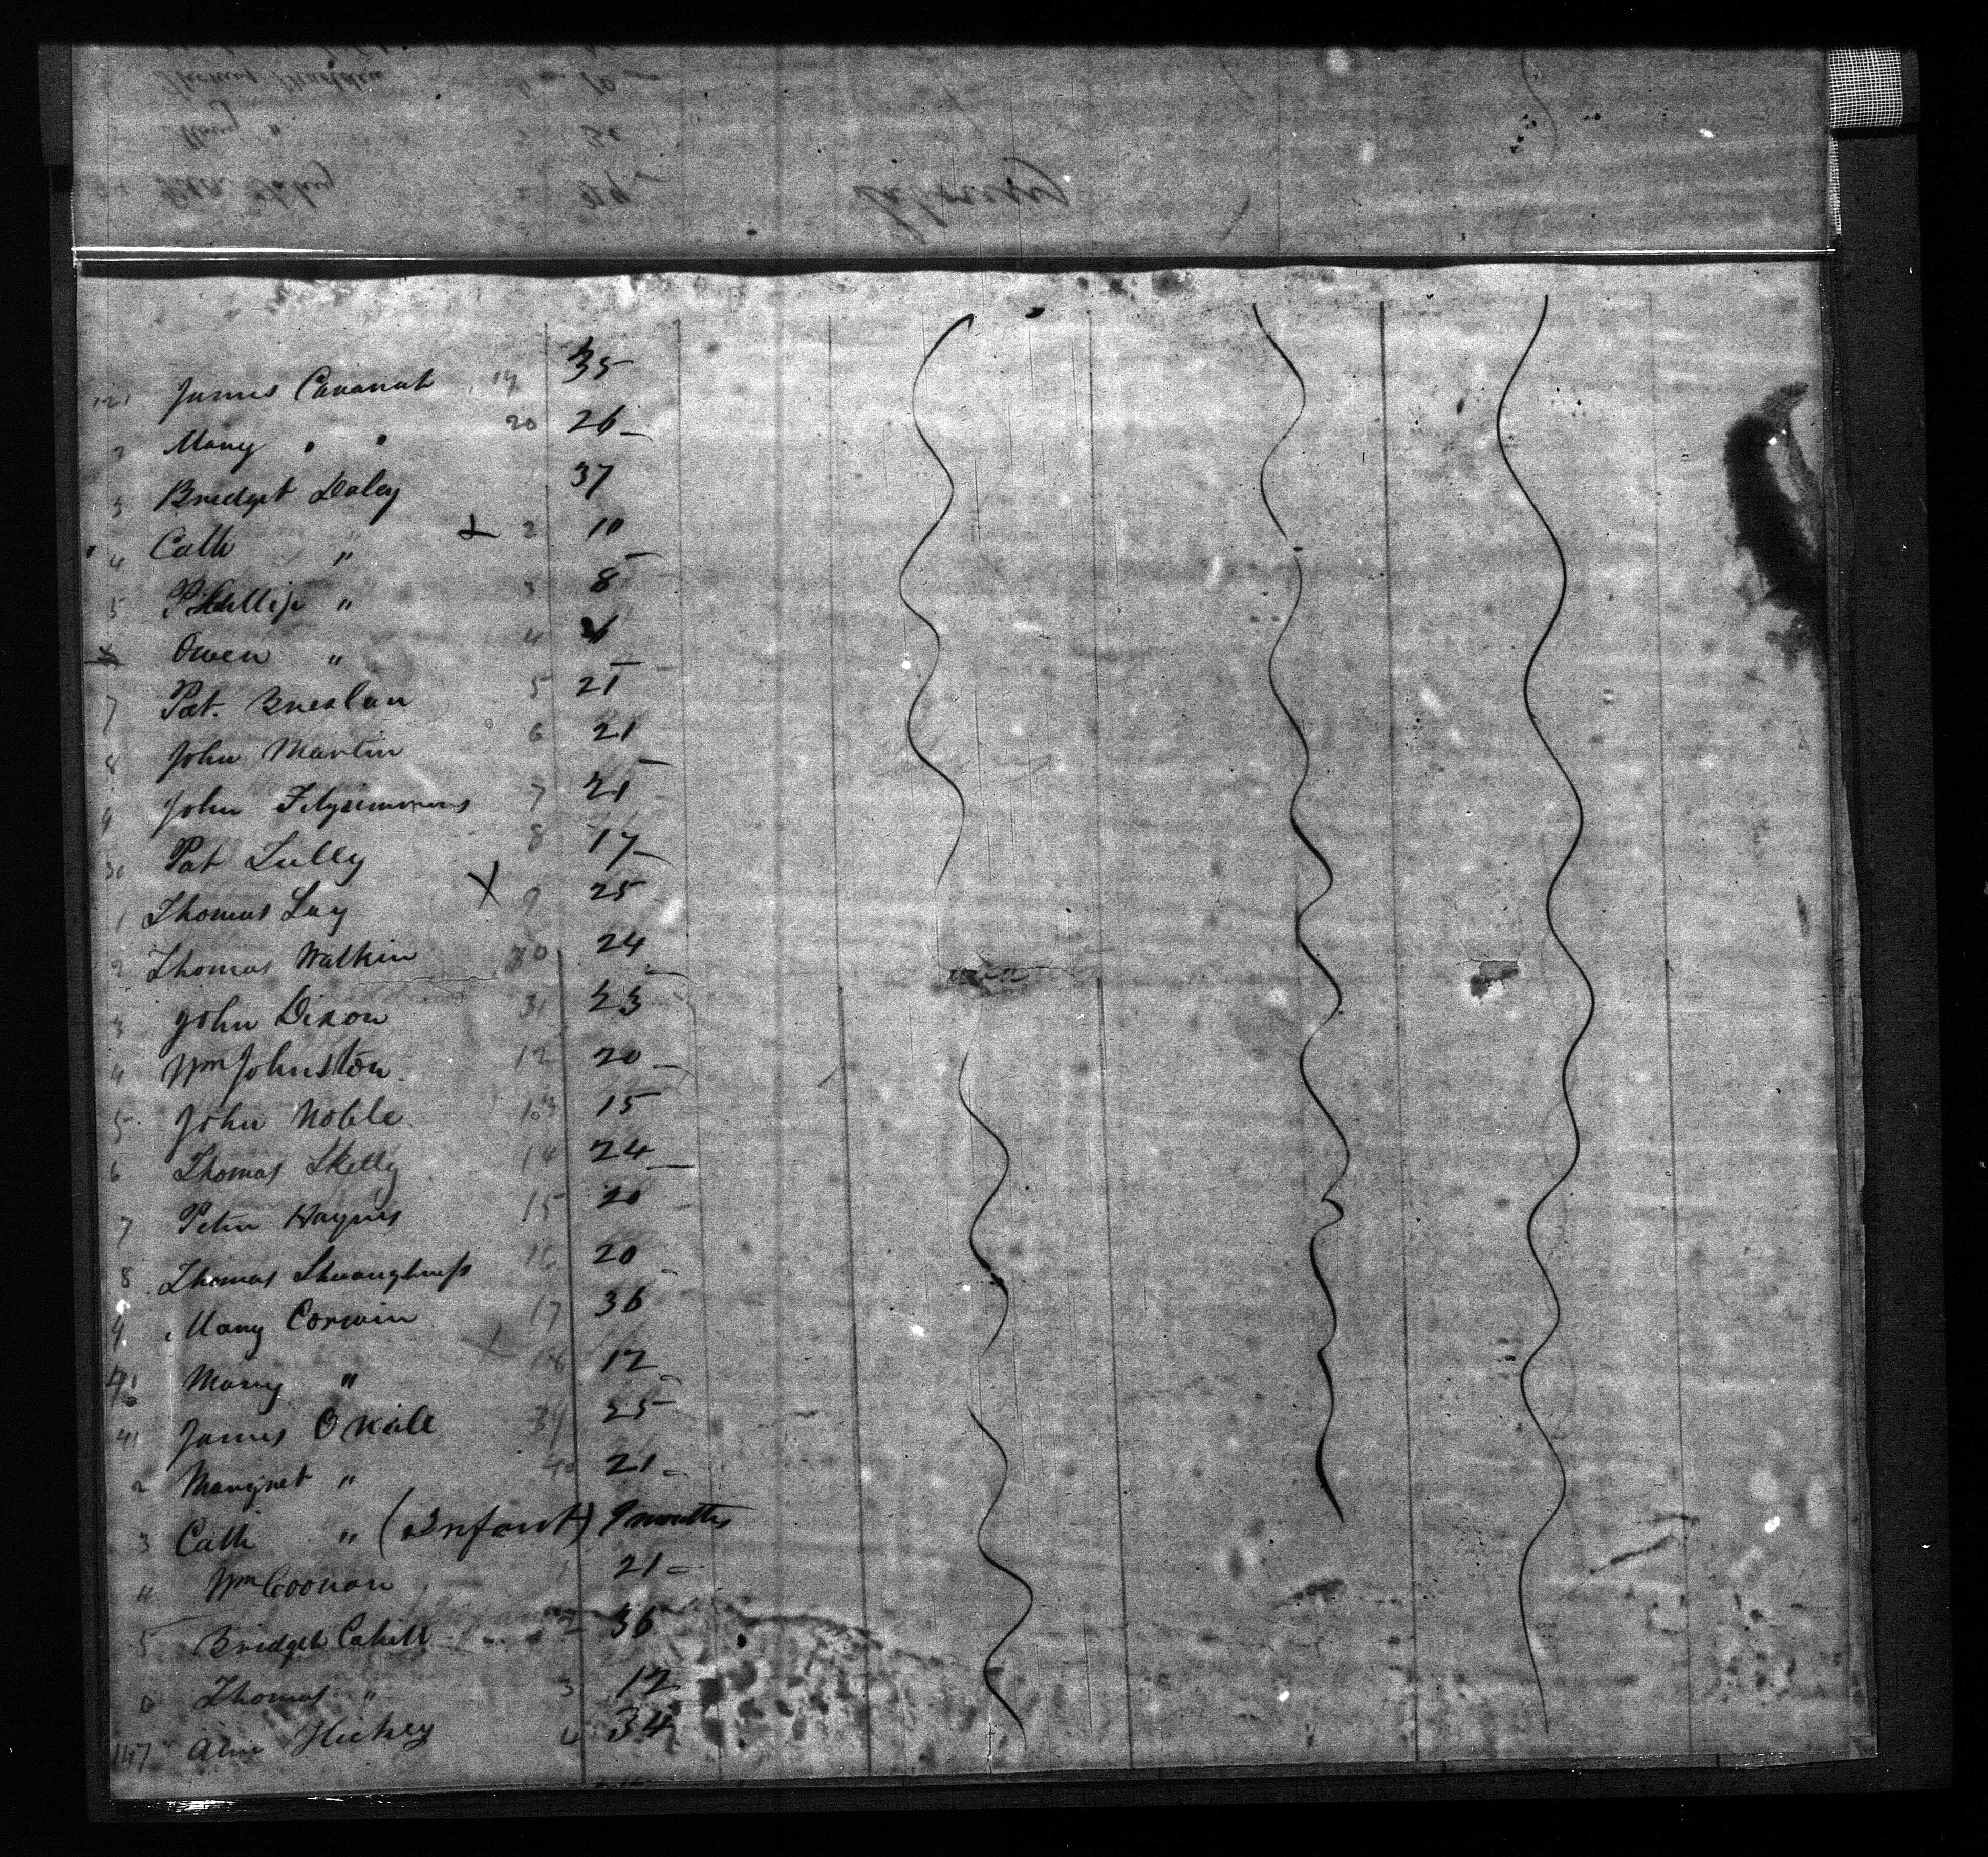 121 James Cavanah 19 35
2 Mary " " 20 26
3 Bridget Daley 37
4 Cath " 2 10
5 Phillip " 3 8
Owen " 4 6
7 Pat. Breslan 5 21
8 John Martin 6 21
9 John Fitzsimmons 7 21
30 Pat Lully 8 17
1 Thomas Lay X 9 25
2 Thomas Watkin 30 24
3 John Dixon 31 23
4 Wm Johnston 12 20
5 John Noble 13 15
6 Thomas Skelly 14 24
7 Peter Haynes 15 20
8 Thomas 16 20
9 Mary Corwin 17 36
40 Mary " 18 12
41 James O Niall 39 25
2 Margret " 40 21
3 Cath " (Infant) 9 months
4 Wm Coonan 1 21
5 Bridget Cahill 2 36
6 Thomas " 3 12
147 Ann Hickey 4 34